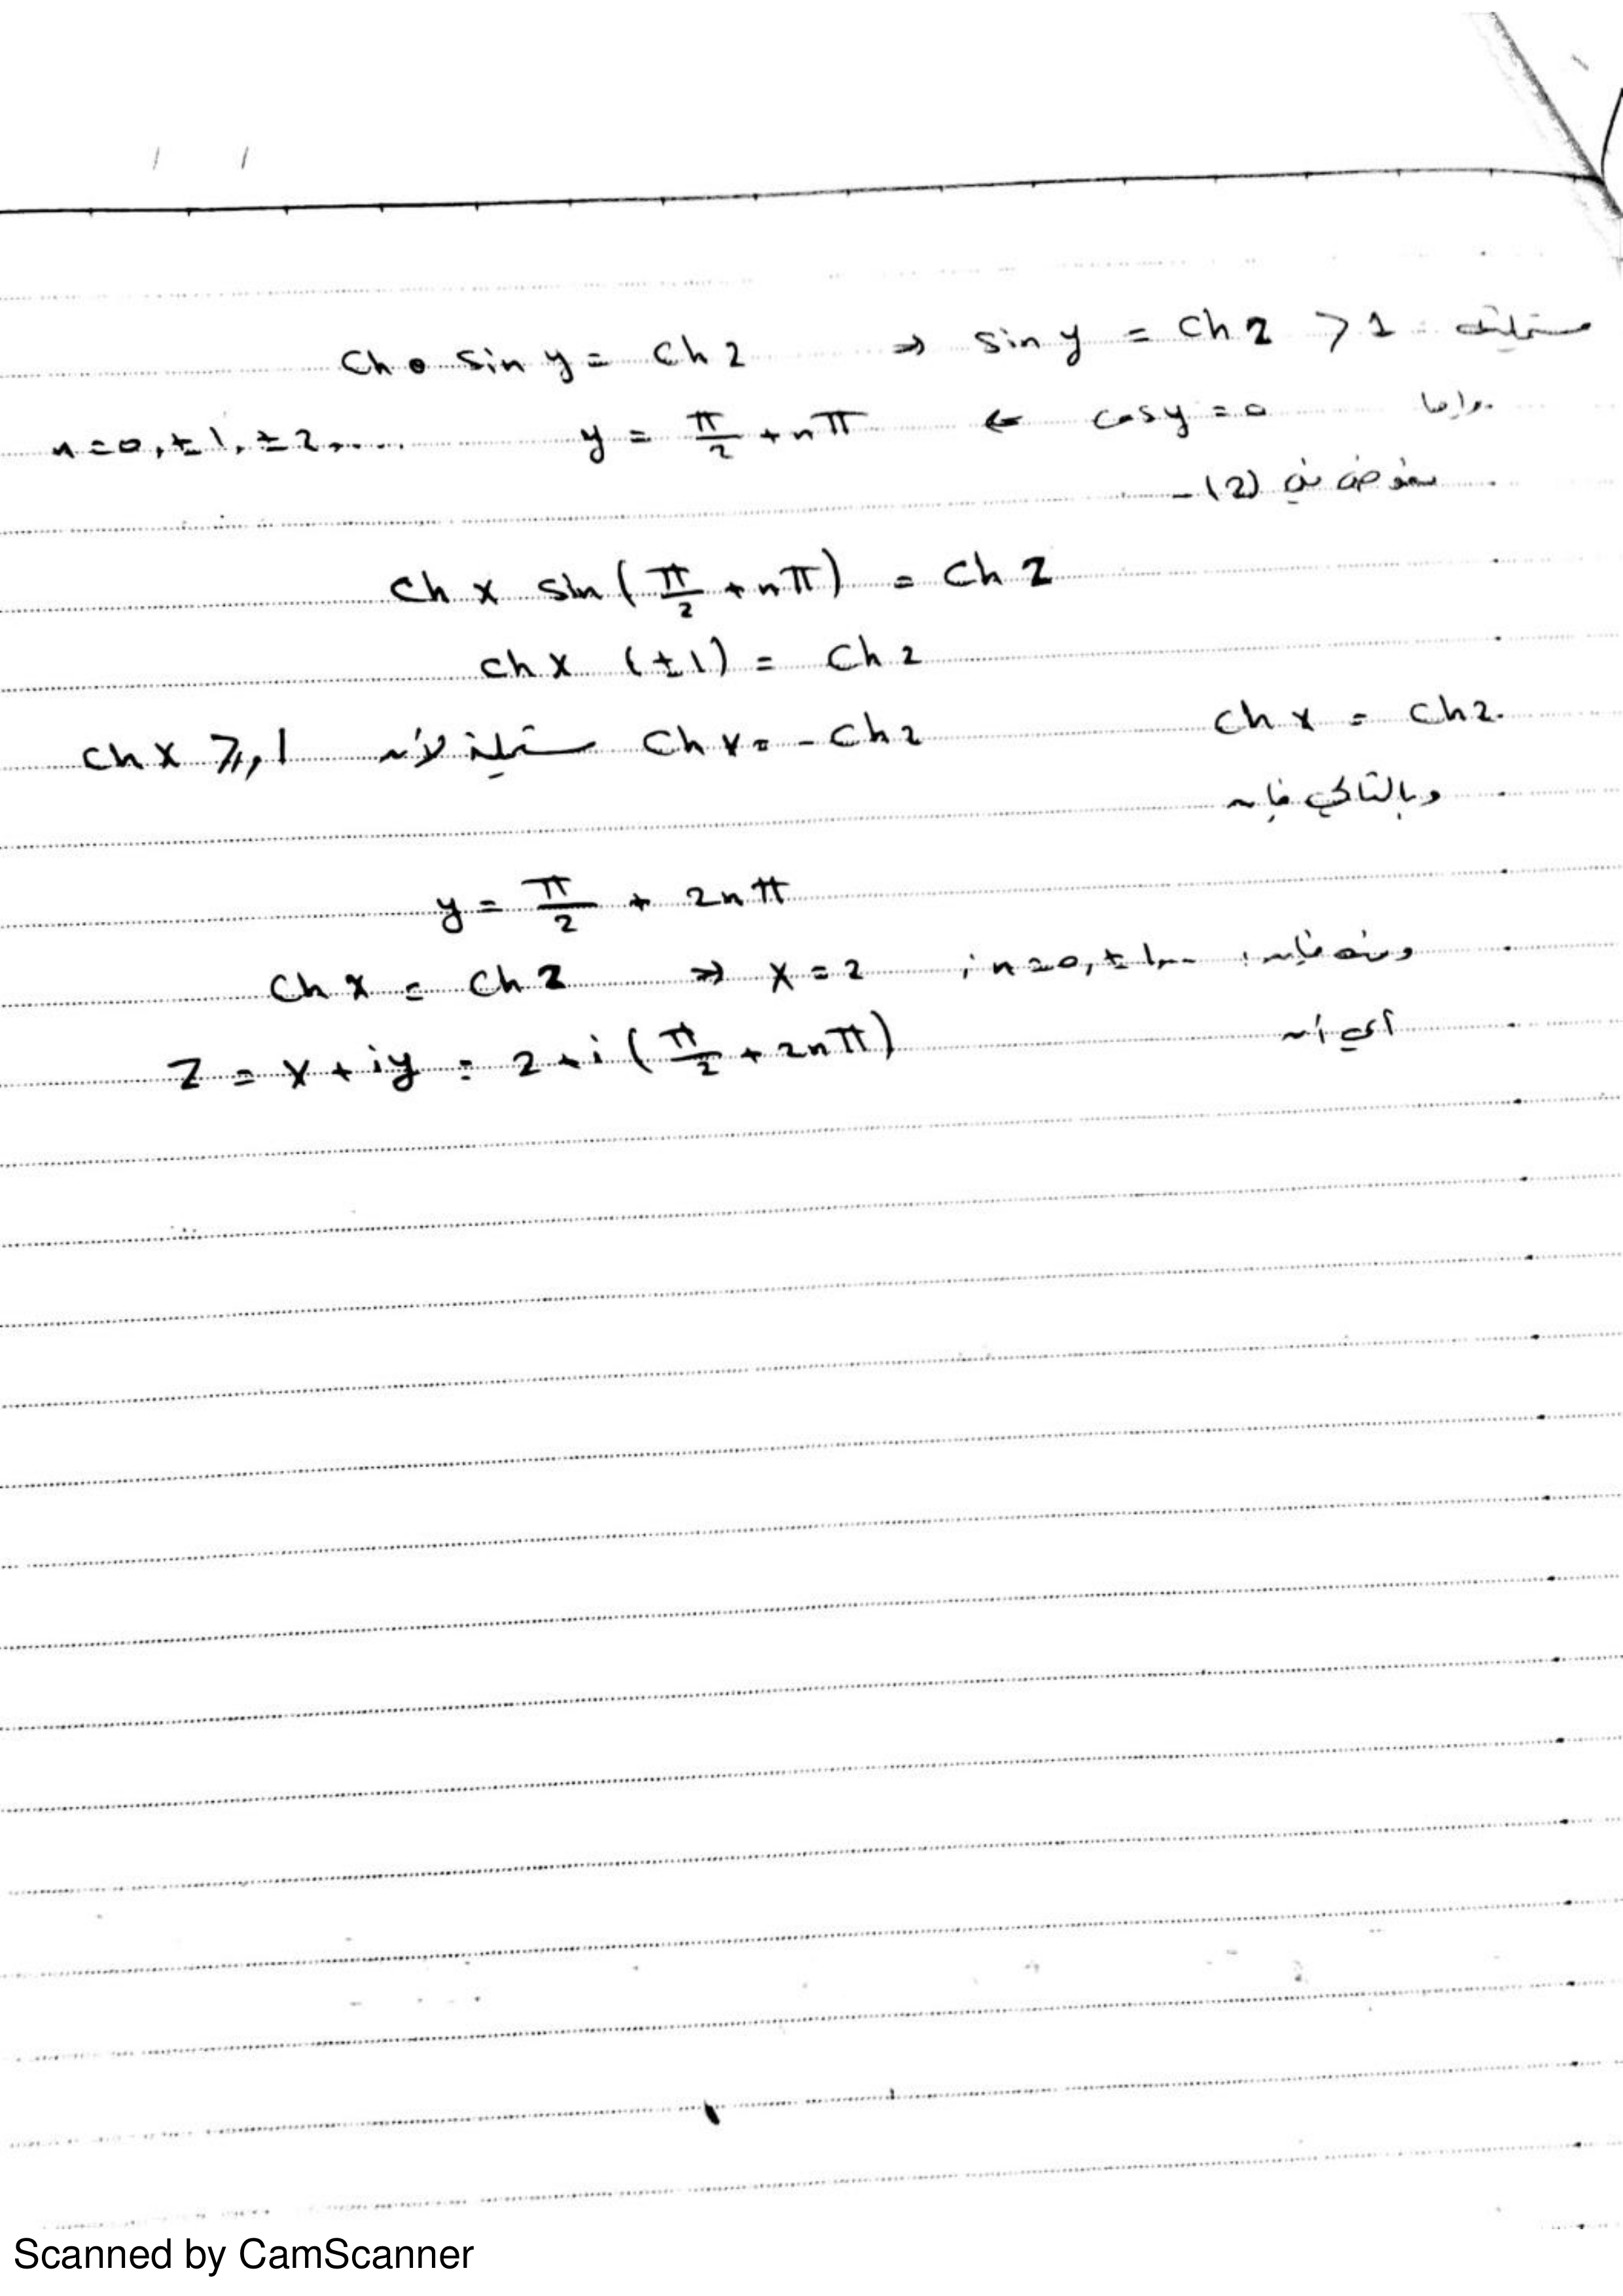 Ch 0 sin y = Ch 2 ⇒ sin y = Ch 2 > 1 مستحيلة
وإما cos y = 0 ← y = π/2 + nπ n = 0, ±1, ±2, ....
نعوض في (2) -
Ch x sin(π/2 + nπ) = Ch 2
ch x (±1) = Ch 2
Ch x = Ch 2. Ch x = - Ch 2 مستحيلة لأن Ch x ⩾ 1
وبالتالي فإن
y = π/2 + 2nπ
ومنه فإن: Ch x = Ch 2 ⇒ x = 2 ; n = 0, ±1, ...
أي أن Z = x + iy = 2 + i(π/2 + 2nπ)
Scanned by CamScanner